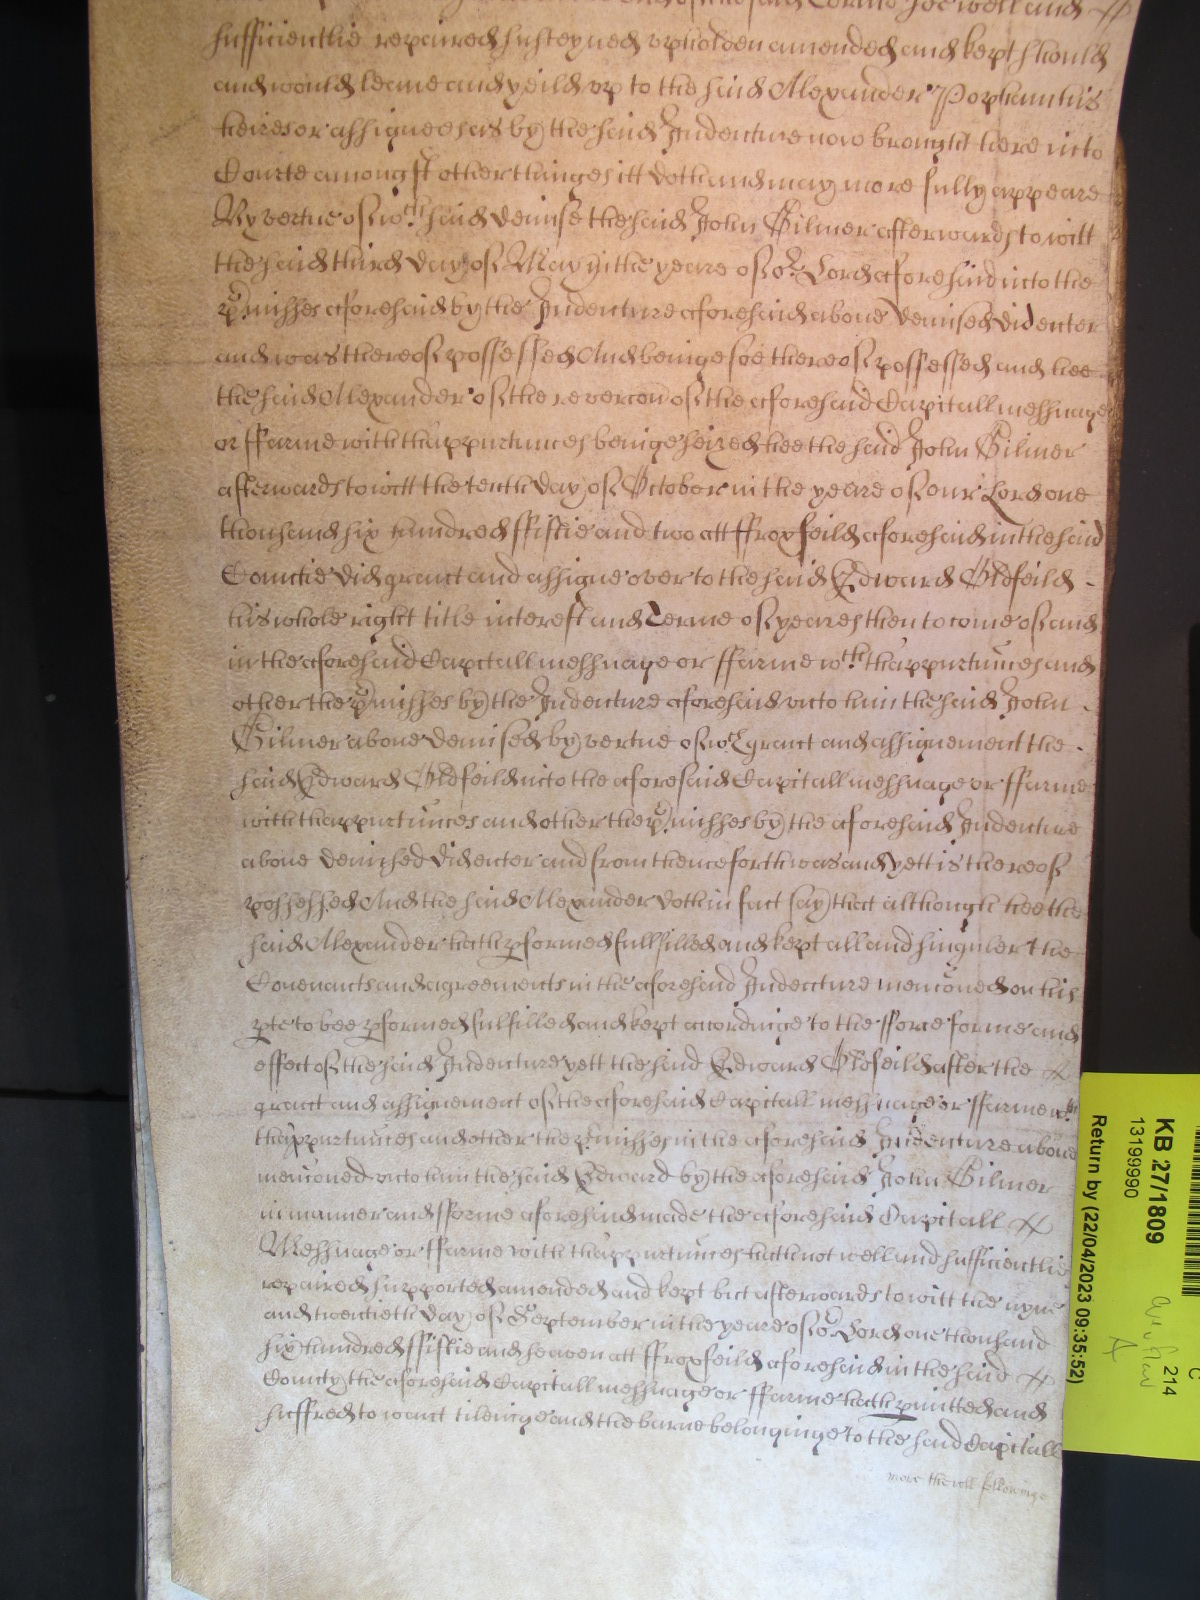 said Edmo soe well and
sufficientlie repaired susteyned upholden amended and kept should
and would leave and yeild up to the said Alexander Popham his
heires or assignees as by the said Indenture now brought here into
Courte amongst other thinges itt doth and may more fully appeare
By vertue of wch said demise the said John Gilmer afterwards to witt
the said third day of May in the yeare of or Lord aforesaid into the
pmisses aforesaid by the Indenture aforesaid above demised did enter
and was thereof possessed And beinge soe thereof possessed and hee
the said Alexander of the revercon of the aforesaid Capitall messuage
or ffarme with thappurtunces beinge seized hee the said John Gilmer
afterwards to witt the tenth day of October in the yeare of our Lord one
thousand six hundred ffiftie and two att ffroxfeild aforesaid in the said
Countie did grant and assigne over to the said Edward Oldfeild
his whole right title interest and Terme of yeares then to come of and
in the aforesaid Capitall messuage or ffarme wth thappurtunces and
other the pmisses by the Indenture aforesaid unto him the said John
Gilmer above demised by vertue of wch grant and assignement the
said Edward Oldfeild into the aforesaid Capitall messuage or ffarme
with thappurtunces and other the pmisses by the aforesaid Indenture
above demised did enter and from thenceforth was and yett is thereof
possessed And the said Alexander doth in fact say that although hee the
said Alexander hath pformed fullfilled and kept all and singuler the
Covenants and agreements in the aforesaid Indenture menconed on his
pte to bee pformed fulfilled and kept accordinge to the fforce forme and
effect of the said Indenture yett the said Edward Oldfeild after the
grant and assignement of the aforesaid Capitall messuage or ffarme wth
thappurtunces and other the pmisses in the aforesaid Indenture above
menconed unto him the said Edward by the aforesaid John Gilmer
in manner and fforme aforesaid made the aforesaid Capitall
Messuage or ffarme with thappurtunces hath not well and sufficientlie
repaired supported amended and kept but afterwards to witt the nyne
and twentieth day of September in the yeare of or Lord one thousand
six hundred ffiftie and seaven att ffroxfeild aforesaid in the said
County the aforesaid Capitall messuage or ffarme hath pmitted and
suffred to want tileinge and the barne belonginge to the said Capitall
more the roll followinge
KB 27/1809
13199990
Return by (22/04/2023 09:35:52)
214